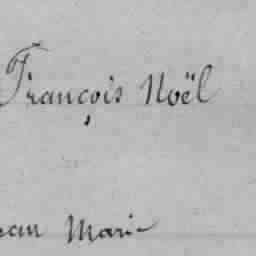 François Noël
ean Marie